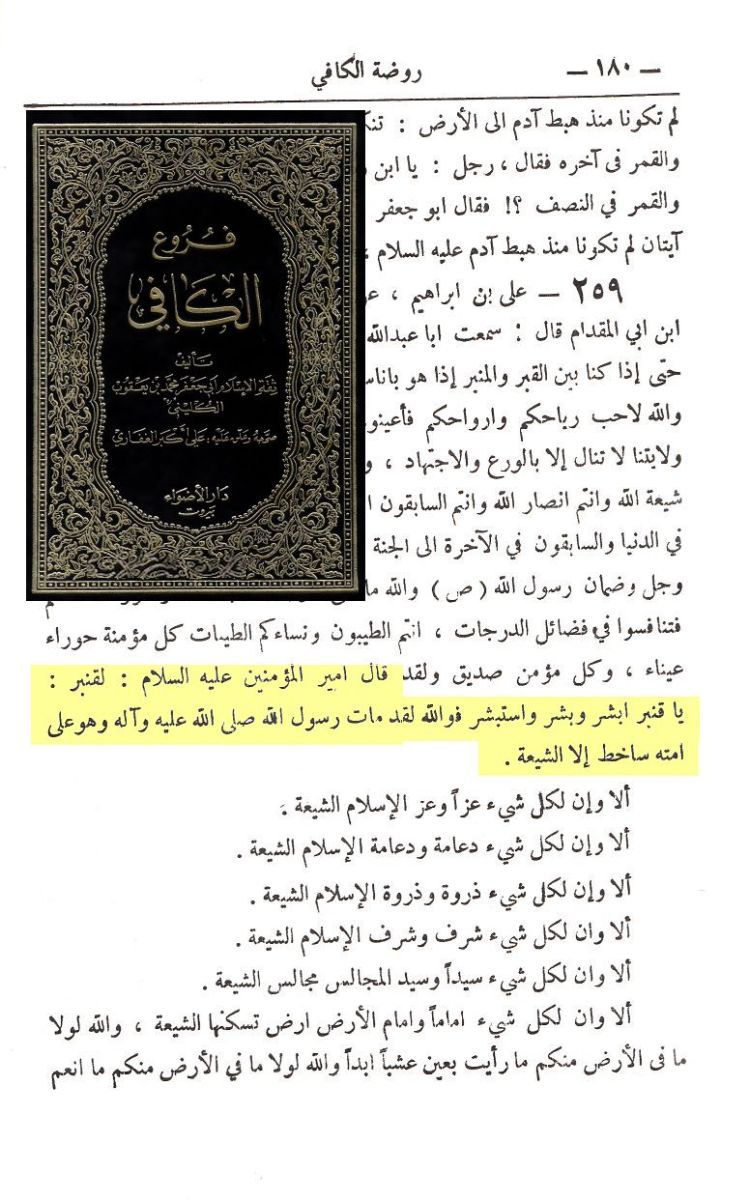 — ١٨٠ —
روضة الكافي
لم تكونا منذ هبط آدم الى الأرض :
والقمر فى آخره فقال ، رجل : يا ابن
والقمر في النصف ؟! فقال ابو جعفر
آيتان لم تكونا منذ هبط آدم عليه السلام
٢٥٩ — على بن ابراهيم ،
ابن ابي المقدام قال : سمعت ابا عبدالله
حتّى إذا كنا بين القبر والمنبر إذا هو
والله لاحب رياحكم وارواحكم
ولايتنا لا تنال إلا بالورع والاجتهاد ،
شيعة الله وانتم انصار الله وانتم السابقون
في الدنيا والسابقون في الآخرة الى الجنة
وجل وضمان رسول الله ( ص ) والله
فتنافسوا في فضائل الدرجات ، انتم الطيبون ونساءكم الطيبات كل مؤمنة حوراء
عيناء ، وكل مؤمن صديق ولقد قال امير المؤمنين عليه السلام : لقنبر :
يا قنبر ابشر وبشر واستبشر فوالله لقد مات رسول الله صلى الله عليه وآله وهو على
امته ساخط إلا الشيعة .
ألا وإن لكل شيء عزاً وعز الإسلام الشيعة .
ألا وإن لكل شيء دعامة ودعامة الإسلام الشيعة .
ألا وإن لكل شيء ذروة وذروة الإسلام الشيعة .
ألا وان لكل شيء شرف وشرف الإسلام الشيعة .
ألا وان لكل شيء سيداً وسيد المجالس مجالس الشيعة .
ألا وان لكل شيء اماماً وامام الأرض ارض تسكنها الشيعة ، والله لولا
ما فى الأرض منكم ما رأيت بعين عشباً ابداً والله لولا ما في الأرض منكم ما انعم
فروع
الكافي
تأليف
ثقة الإسلام أبي جعفر محمد بن يعقوب
الكليني
صححه وعلق عليه ، علي أكبر الغفاري
دار الأضواء
بيروت